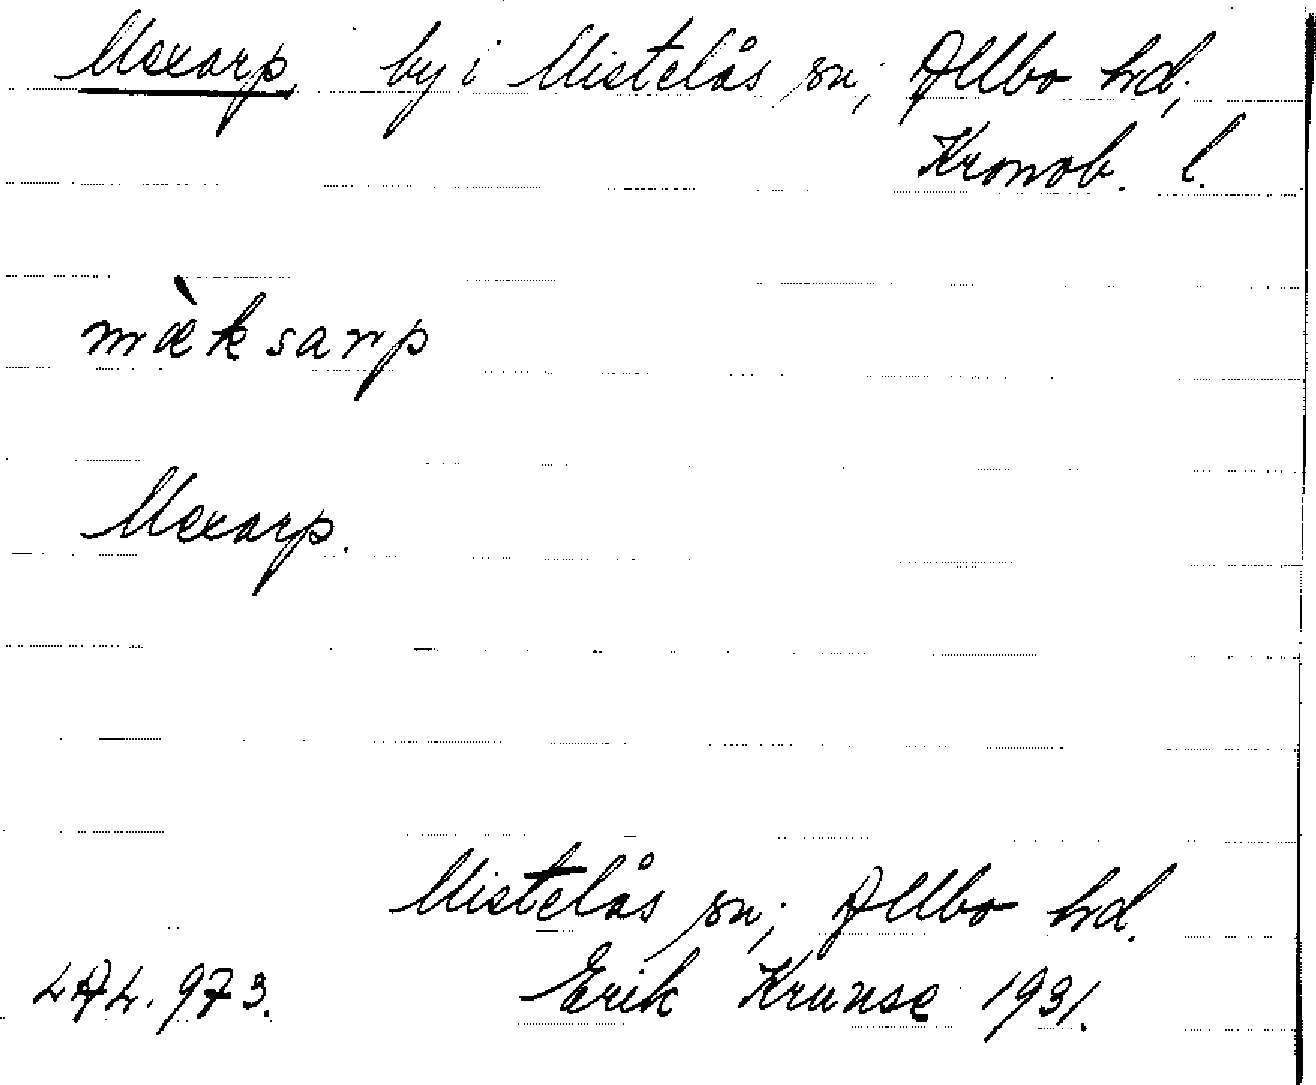 Mexarp, by i Mistelås sn; Allbo hd;
Kronob. l.
mæ̀ksarp
Mexarp.
Mistelås sn; Allbo hd.
LAL. 973. Erik Krunse 1931.